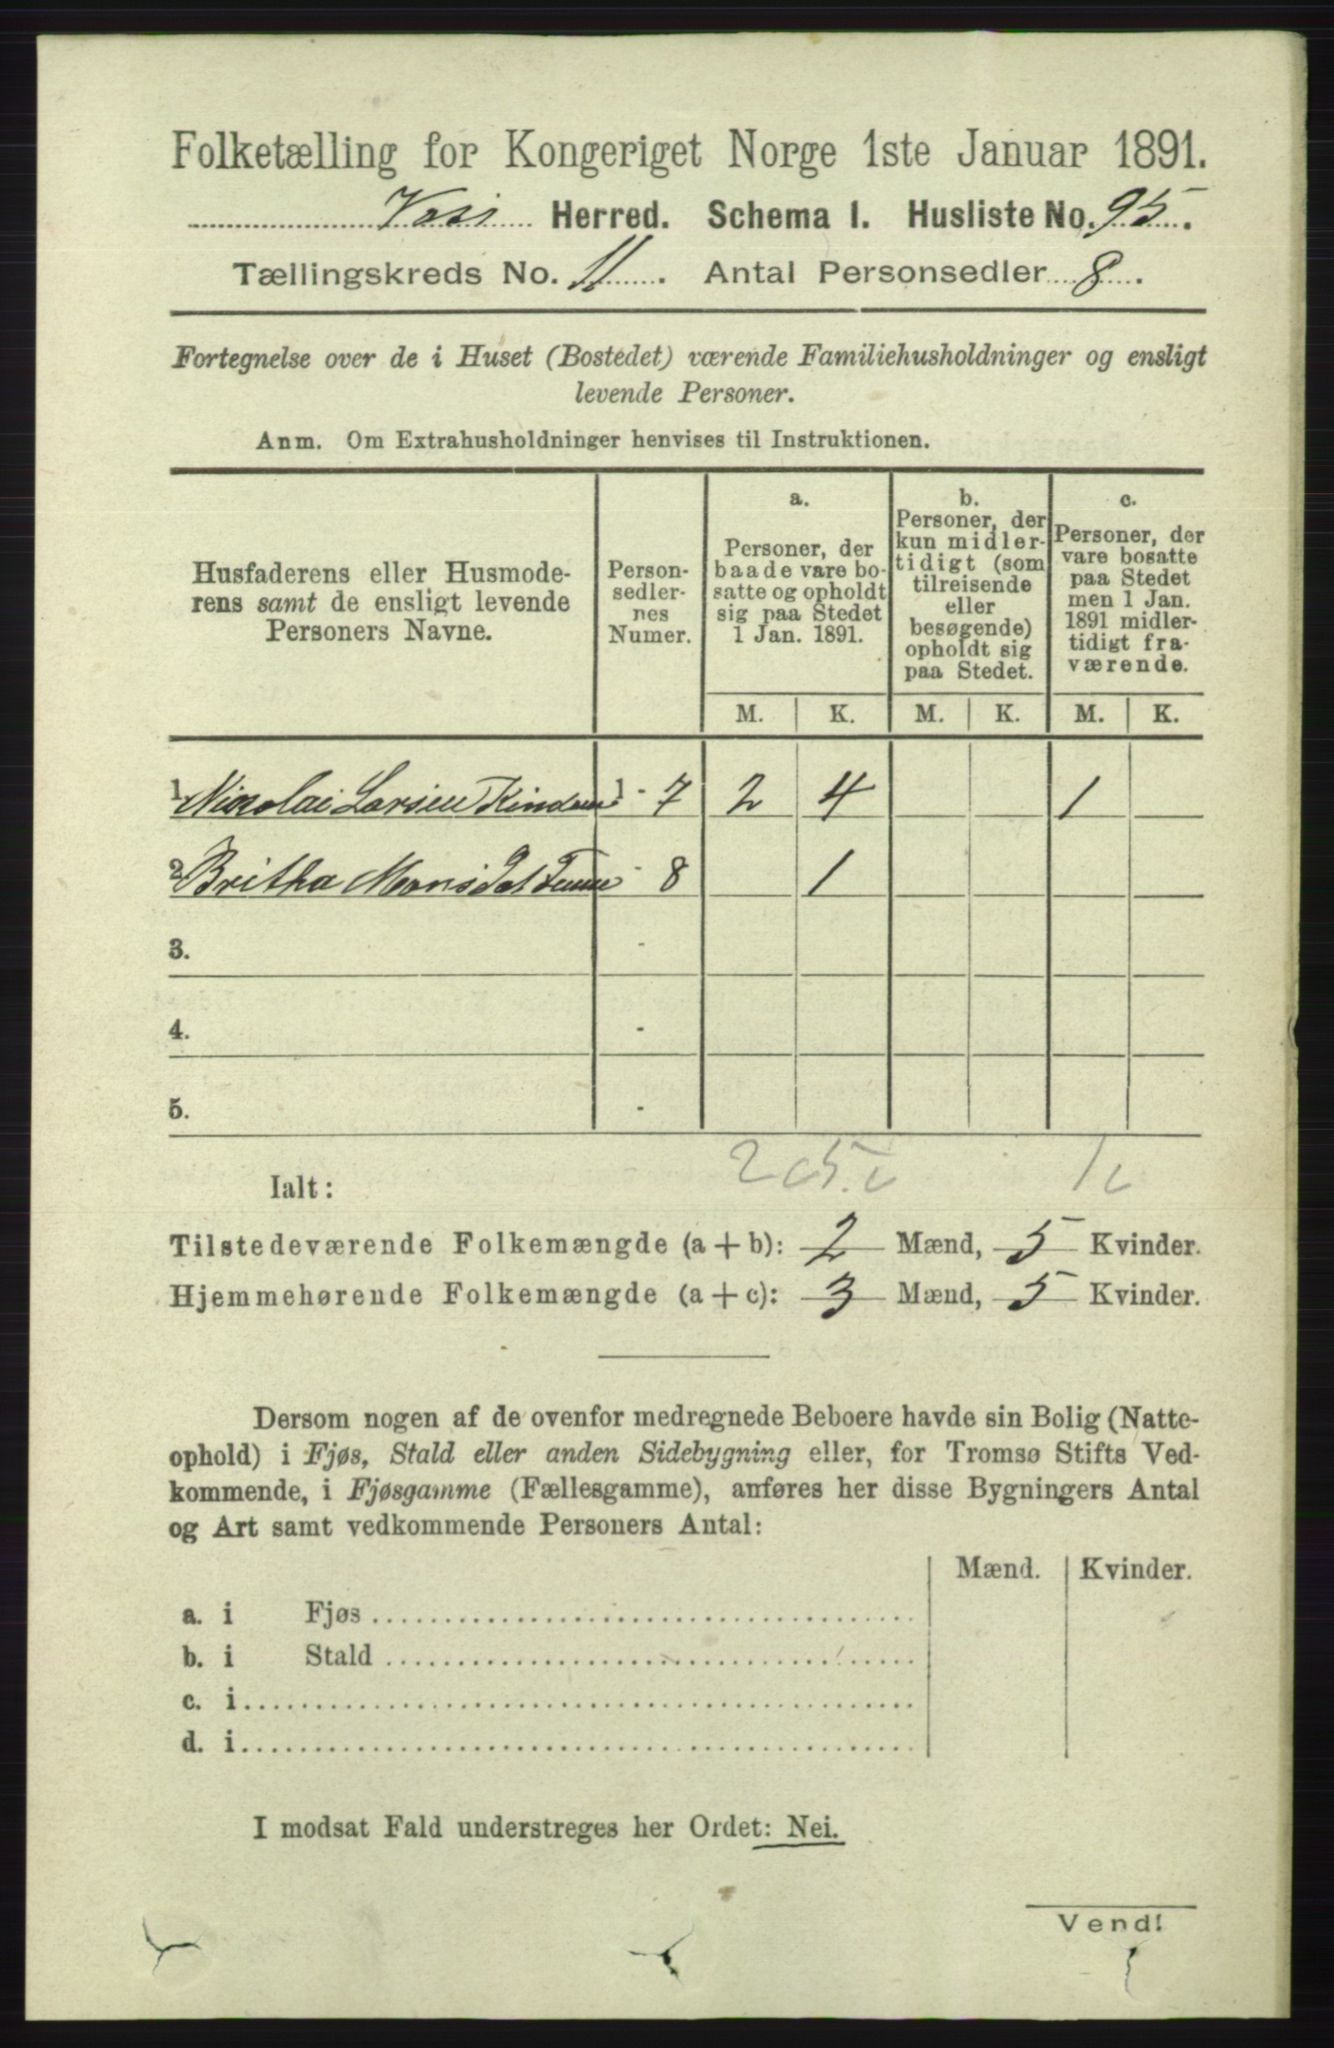 Folketælling for Kongeriget Norge 1ste Januar 1891.
Voss Herred. Schema I. Husliste No. 95.
Tællingskreds No. 11. Antal Personsedler 8.
Fortegnelse over de i Huset (Bostedet) værende Familiehusholdninger og ensligt
levende Personer.
Anm. Om Extrahusholdninger henvises til Instruktionen.
Husfaderens eller Husmode-
rens samt de ensligt levende
Personers Navne.
Person-
sedler-
nes
Numer.
a.
Personer, der
baade vare bo-
satte og opholdt
sig paa Stedet
1 Jan. 1891.
b.
Personer, der
kun midler-
tidigt (som
tilreisende
eller
besøgende)
opholdt sig
paa Stedet.
c.
Personer, der
vare bosatte
paa Stedet
men 1 Jan.
1891 midler-
tidigt fra-
værende.
M. K. M. K. M. K.
1 Nikolai Larsen 1 - 7 2 4 1
2 Britha Mons - 8 1
3. -
4. -
5. -
2 5 1
Ialt:
Tilstedeværende Folkemængde (a + b): 2 Mænd, 5 Kvinder.
Hjemmehørende Folkemængde (a + c): 3 Mænd, 5 Kvinder.
Dersom nogen af de ovenfor medregnede Beboere havde sin Bolig (Natte-
ophold) i Fjøs, Stald eller anden Sidebygning eller, for Tromsø Stifts Ved-
kommende, i Fjøsgamme (Fællesgamme), anføres her disse Bygningers Antal
og Art samt vedkommende Personers Antal:
Mænd. Kvinder.
a. i Fjøs
b. i Stald
c. i
d. i
I modsat Fald understreges her Ordet: Nei.
Vend!